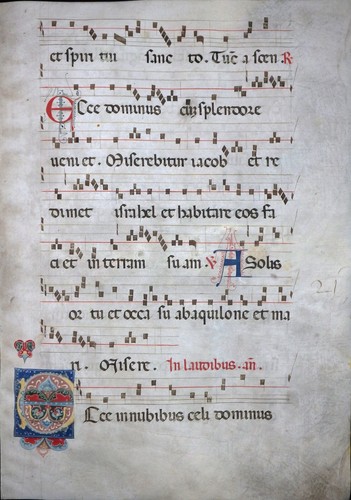 et spiri tui sanc to. Tūc a scen R
Ecce dominus cū splendore
veni et. Miserebitur iacob et re
dimet israhel et habitare eos fa
ci et in terram su am. V A Solis
or tu et occa su ab aquilone et ma
ri. Misere. In laudibus. an.
Ecce in nubibus celi dominus
21